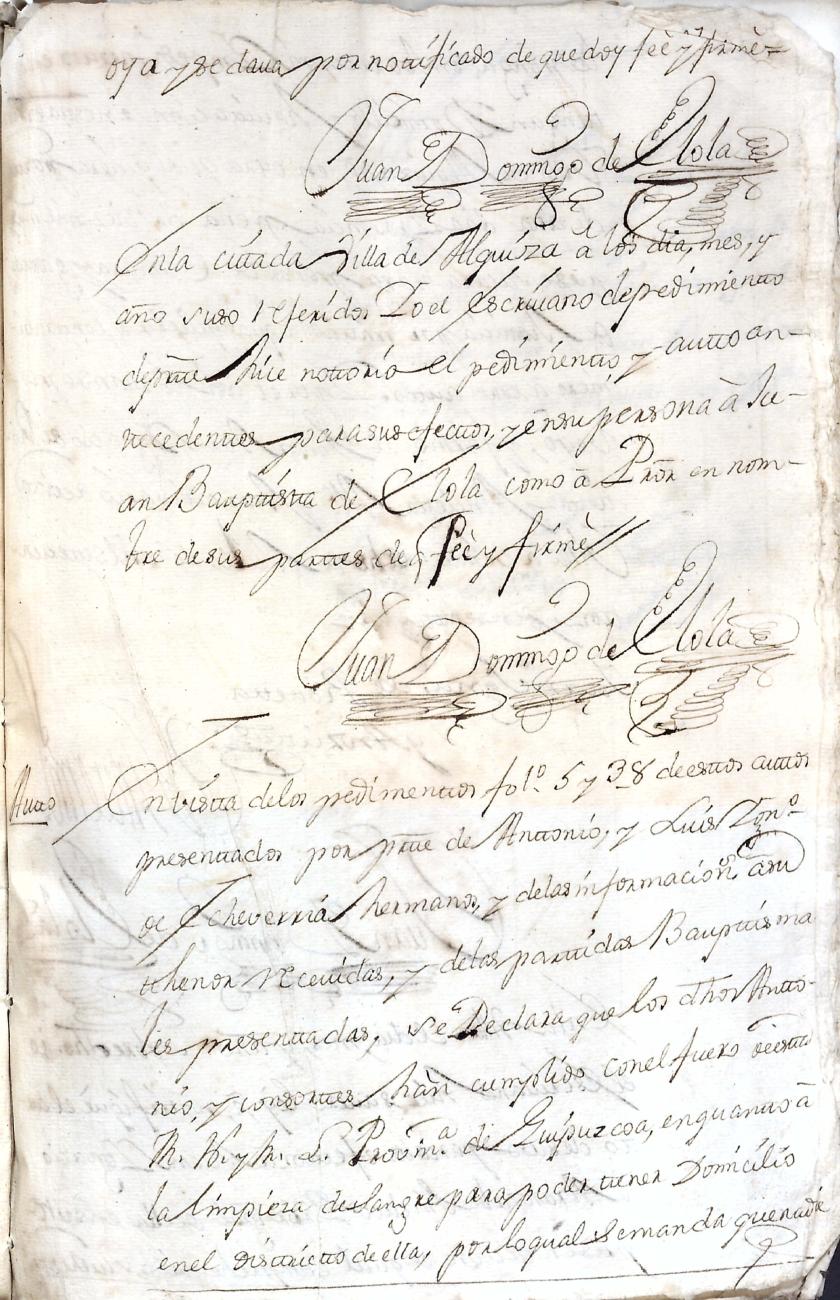 oya y se daua por nottificado de que doy feè y firmè
Juan Domingo de Elola
En la cittada Villa de Alquiza á los dia, mes, y
año suso referidos Yo el Escriuano de pedimientto
de prtte hice nottorio el pedimientto y autto an-
ttecedenttes para sus efecttos, y en su persona à Ju-
an Bauptistta de Elola como à Pror en nom-
bre de sus parttes de q feè y firmè
Juan Domingo de Elola
Autto
En vistta de los pedimienttos fols. 5 y 38 de esttos auttos
presenttados por prtte de Anttonio, y Luis Ign.º
de Echeverria hermanos, y de las informacion.s à su
thenor recevidas, y de las parttidas Bauptisma
les presenttadas, se Declara que los dhos Antto-
nio, y consorttes hàn cumplido con el fuero de estta
M. N. y M. L. Provin.ª de Guipuzcoa, en quantto à
la limpieza de Sangre para poder ttener Domicilio
en el disttritto de ella, por lo qual se manda que nadie